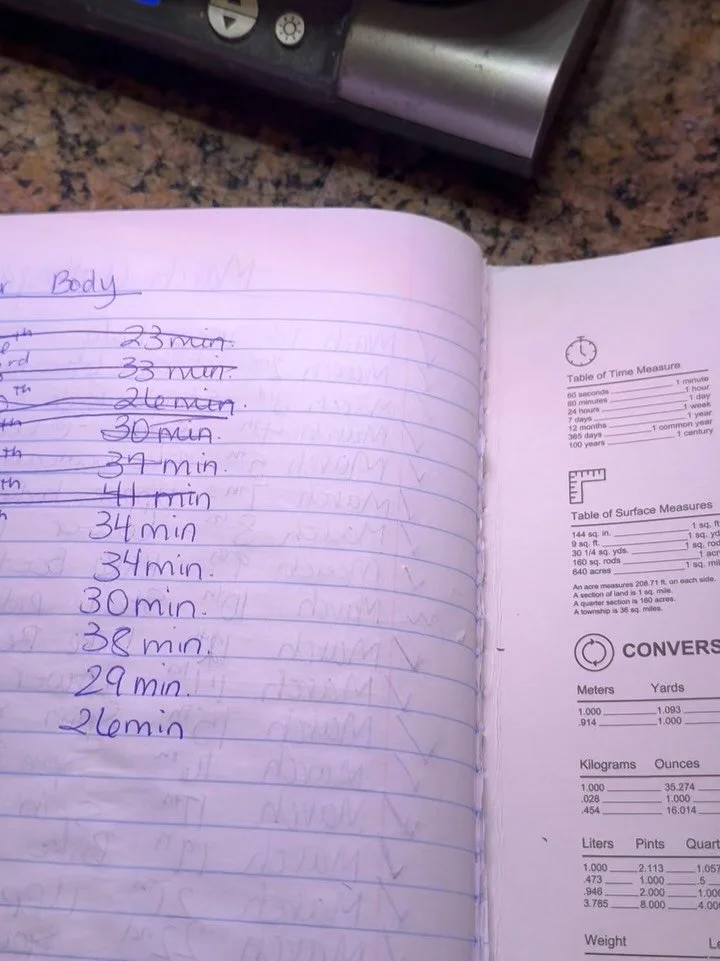 Body
th 23 min.
rd 33 min.
th 26 min.
th 30 min.
th 37 min.
th 41 min
34 min
34 min.
30 min.
38 min.
29 min.
26 min
Table of Time Measure
60 seconds 1 minute
60 minutes 1 hour
24 hours 1 day
7 days 1 week
12 months 1 year
365 days 1 common year
100 years 1 century
Table of Surface Measures
144 sq. in. 1 sq. ft
9 sq. ft. 1 sq. yd
30 1/4 sq. yds. 1 sq. rod
160 sq. rods 1 acr
640 acres 1 sq. mil
An acre measures 208.71 ft. on each side.
A section of land is 1 sq. mile.
A quarter section is 160 acres.
A township is 36 sq. miles.
CONVERS
Meters Yards
1.000 1.093
.914 1.000
Kilograms Ounces
1.000 35.274
.028 1.000
.454 16.014
Liters Pints Quart
1.000 2.113 1.057
.473 1.000 .5
.946 2.000 1.000
3.785 8.000 4.000
Weight Le